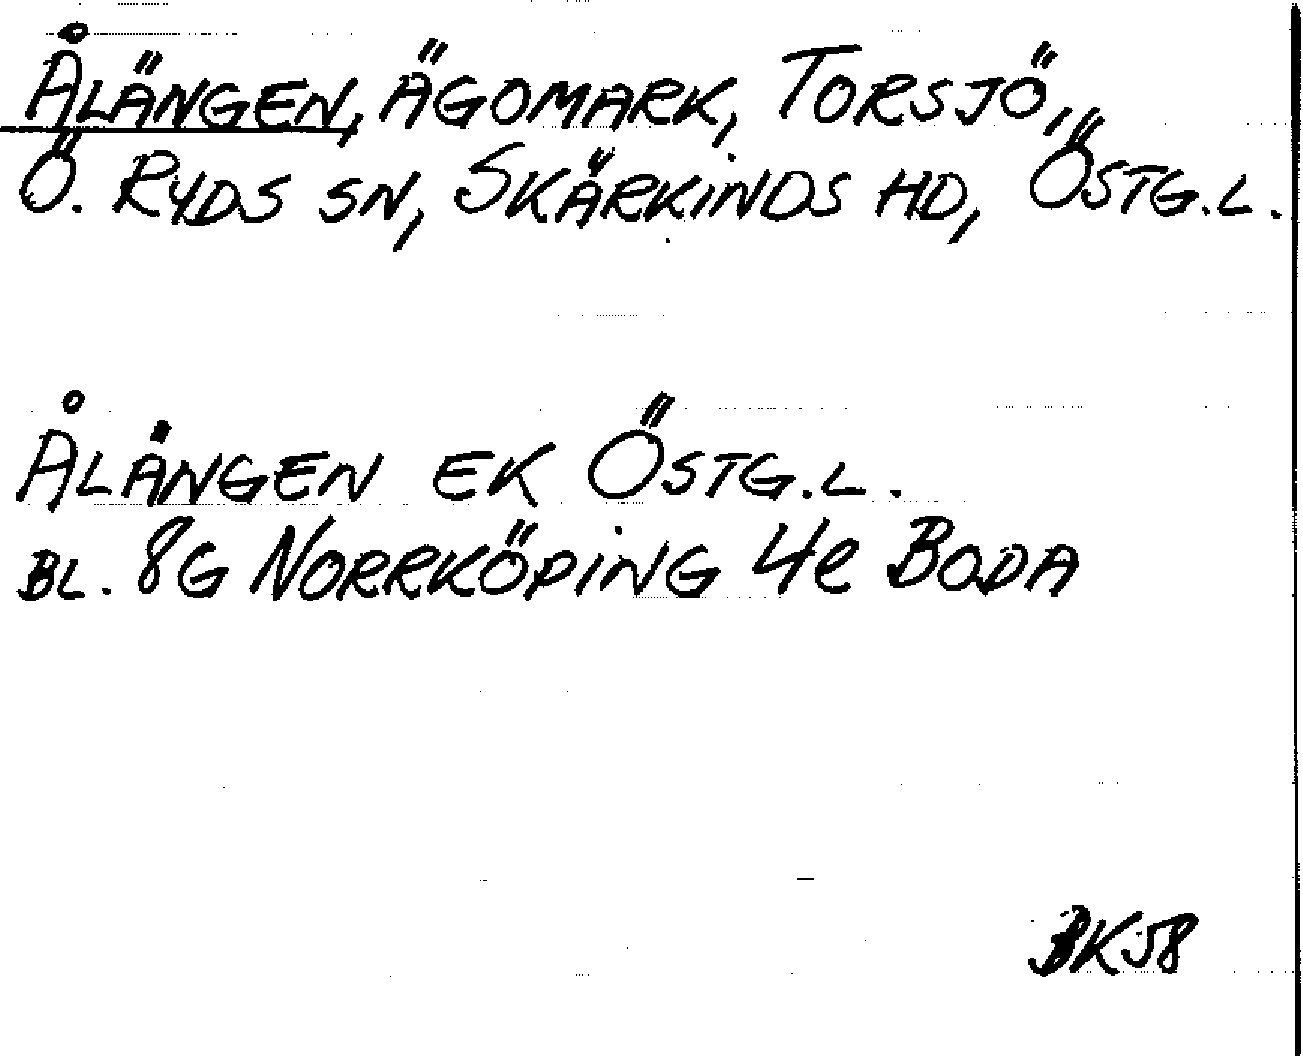 ÅLÄNGEN, ÄGOMARK, TORSJÖ,
Ö. RYDS SN, SKÄRKINDS HD, ÖSTG.L.
ÅLÄNGEN EK ÖSTG.L.
BL. 8G NORRKÖPING 4e BODA
BK58